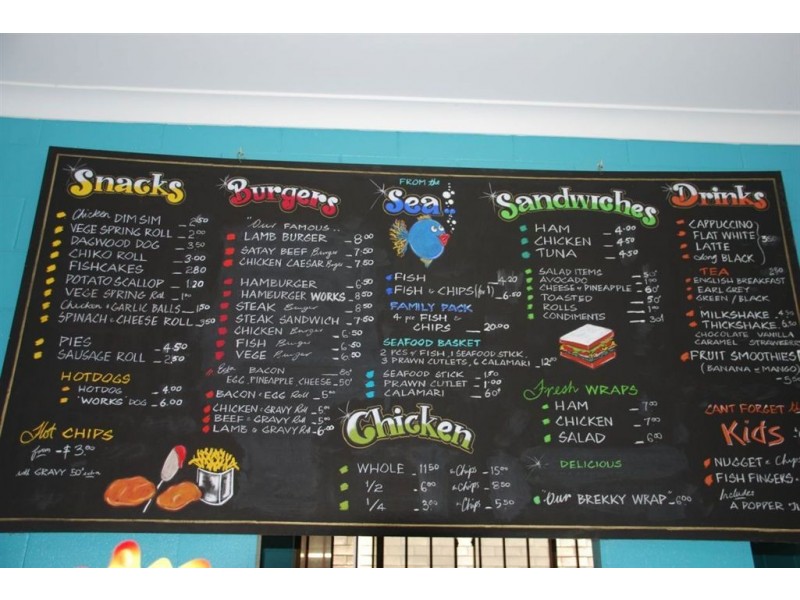 Snacks
Chicken DIM SIM
VEGE SPRING ROLL 2.00
DAGWOOD DOG 3.50
CHIKO ROLL 3.00
FISHCAKES 2.80
POTATO SCALLOP 1.20
VEGE SPRING Roll
Chicken & GARLIC BALLS 1.50
SPINACH & CHEESE ROLL
PIES 4.50
SAUSAGE ROLL
HOTDOGS
HOTDOG 4.00
'WORKS' DOG 6.00
Hot CHIPS
from $3.00
with GRAVY 50¢ extra
Burgers
"Our FAMOUS..
LAMB BURGER 8.00
SATAY BEEF Burger 7.50
CHICKEN CAESAR Burger 7.50
HAMBURGER 6.50
HAMBURGER WORKS 8.50
STEAK Burger 8.50
STEAK SANDWICH 7.50
CHICKEN Burger 6.50
FISH Burger 6.50
VEGE Burger 6.50
Extra BACON
EGG, PINEAPPLE, CHEESE 50¢
BACON & EGG Roll
CHICKEN & GRAVY Roll
BEEF & GRAVY Roll
LAMB & GRAVY Roll
FROM the
Sea..
FISH 4.20
FISH & CHIPS (for 1) 6.00
FAMILY PACK
4 pc FISH &
CHIPS 20.00
SEAFOOD BASKET
2 PCS FISH, 1 SEAFOOD STICK,
3 PRAWN CUTLETS, 6 CALAMARI
SEAFOOD STICK
PRAWN CUTLET 1.00
CALAMARI 60¢
Chicken
WHOLE 11.50 & Chips 15.00
1/2 6.00 & Chips 8.50
1/4 & Chips 5.50
Sandwiches
HAM 4.00
CHICKEN 4.50
TUNA 4.50
SALAD ITEMS 50¢
AVOCADO
CHEESE & PINEAPPLE
TOASTED 50¢
ROLLS
CONDIMENTS 30¢
Fresh WRAPS
HAM 7.00
CHICKEN 7.00
SALAD 6.00
DELICIOUS
"Our BREKKY WRAP" 6.00
Drinks
CAPPUCCINO
FLAT WHITE
LATTE
Long BLACK
TEA
ENGLISH BREAKFAST
EARL GREY
GREEN / BLACK
MILKSHAKE
THICKSHAKE
CHOCOLATE VANILLA
CARAMEL STRAWBERRY
FRUIT SMOOTHIES
(BANANA & MANGO)
CANT FORGET
Kids
NUGGET & Chips
FISH FINGERS
Includes
A POPPER